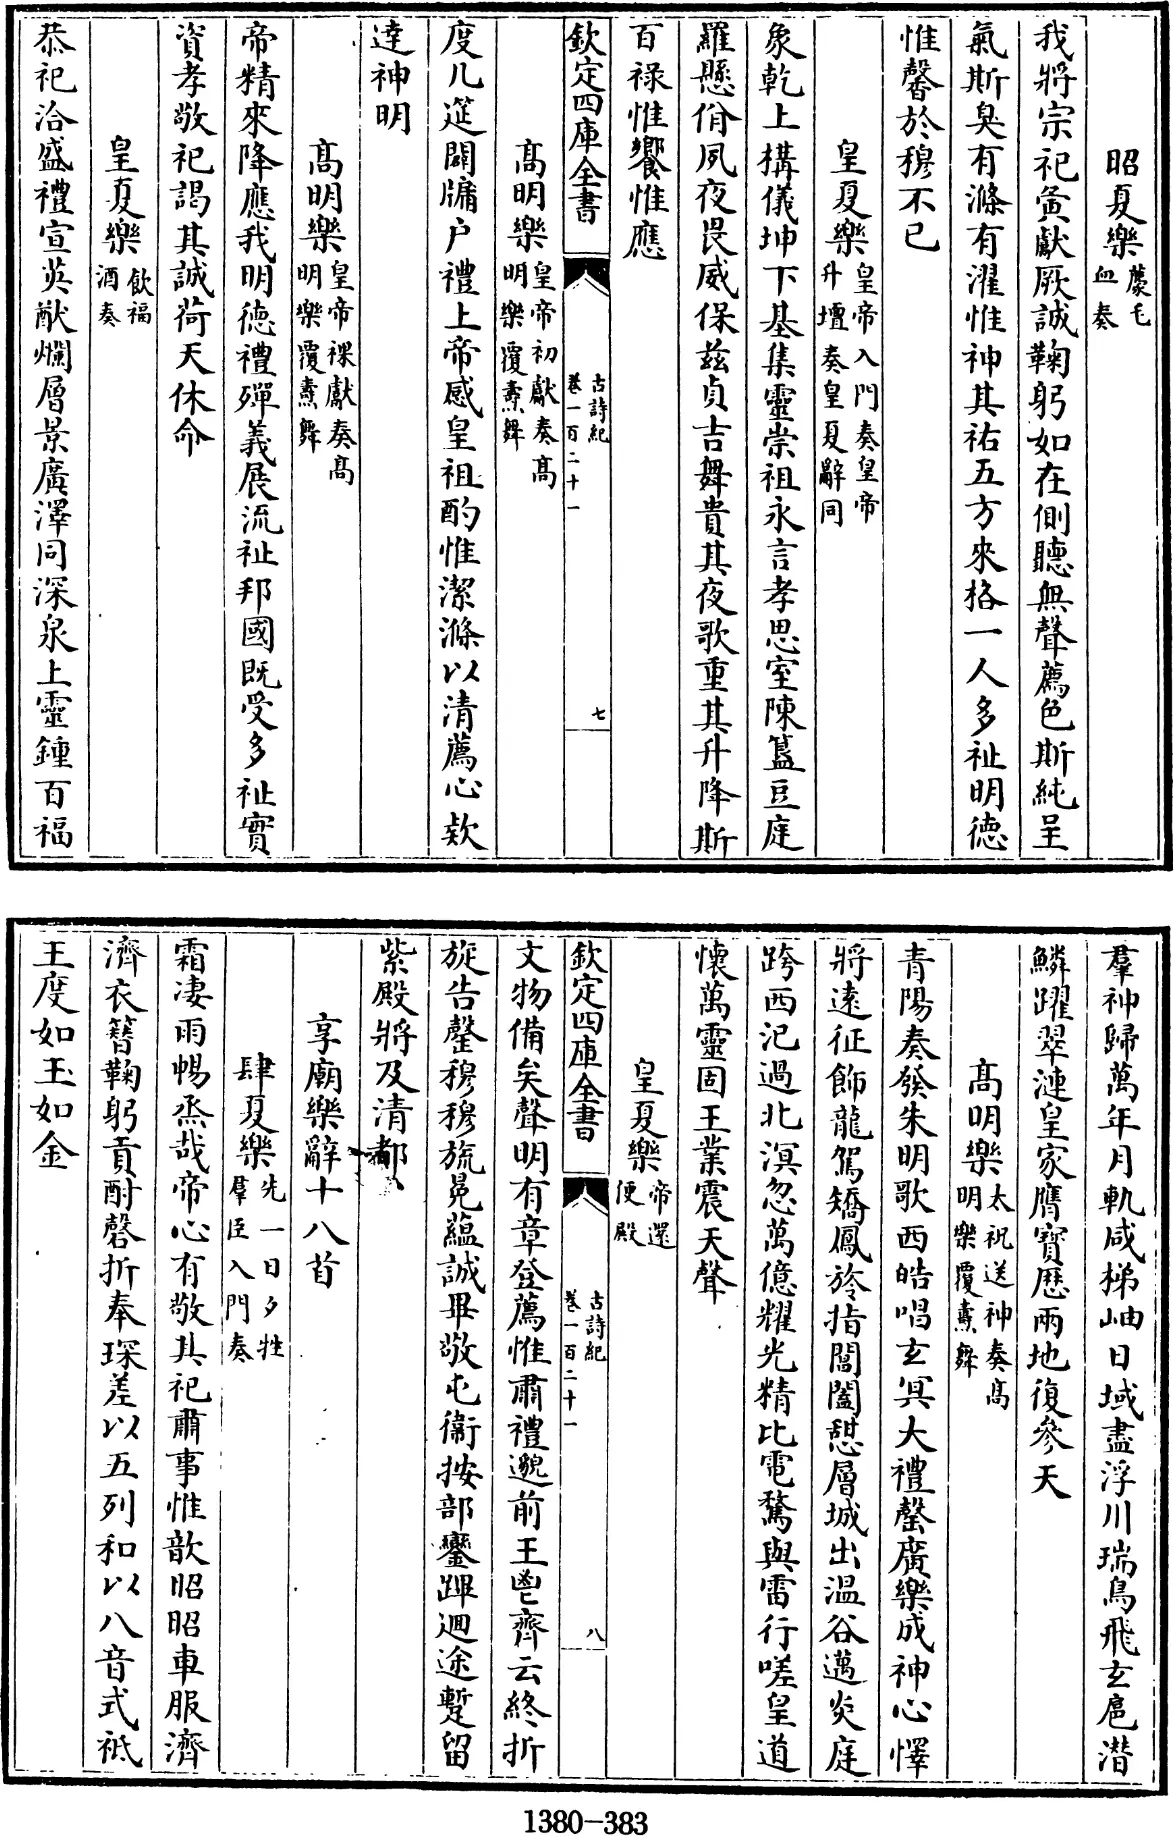 昭夏樂薦毛血奏
我將宗祀夤獻厥誠鞠躬如在側聽無聲薦色斯純呈
氣斯臭有滌有濯惟神其祐五方來格一人多祉明德
惟馨於穆不已
皇夏樂皇帝入門奏皇帝升壇奏皇夏辭同
象乾上搆儀坤下基集靈崇祖永言孝思室陳簋豆庭
羅懸佾夙夜畏威保兹貞吉舞貴其夜歌重其升降斯
百禄惟饗惟應
欽定四庫全書
古詩紀
卷一百二十一
七
髙明樂皇帝初獻奏髙明樂覆燾舞
度几筵闢牖户禮上帝感皇祖酌惟潔滌以清薦心欵
逹神明
髙明樂皇帝祼獻奏髙明樂覆燾舞
帝精來降應我明德禮殫義展流祉邦國既受多祉實
資孝敬祀謁其誠荷天休命
皇夏樂飲福酒奏
恭祀洽盛禮宣英猷爛層景廣澤同深泉上靈鍾百福
羣神歸萬年月軌咸梯岫日域盡浮川瑞鳥飛玄扈潜
鱗躍翠漣皇家膺寶厯兩地復參天
髙明樂太祝送神奏髙明樂覆燾舞
青陽奏發朱明歌西皓唱玄冥大禮罄廣樂成神心懌
將遠征飾龍駕矯鳳旍指閶闔憇層城出温谷邁炎庭
跨西汜過北溟忽萬億耀光精比電騖與雷行嗟皇道
懷萬靈固王業震天聲
皇夏樂帝還便殿
欽定四庫全書
古詩紀
卷一百二十一
八
文物備矣聲明有章登薦惟肅禮邈前王鬯齊云終折
旋告罄穆穆旒冕藴誠畢敬屯衛按部鑾蹕迴途蹔留
紫殿將及清都
享廟樂辭十八首
肆夏樂先一日夕牲羣臣入門奏
霜凄雨暢烝哉帝心有敬其祀肅事惟歆昭昭車服濟
濟衣簪鞠躬貢酎磬折奉琛差以五列和以八音式祗
王度如玉如金
1380-383